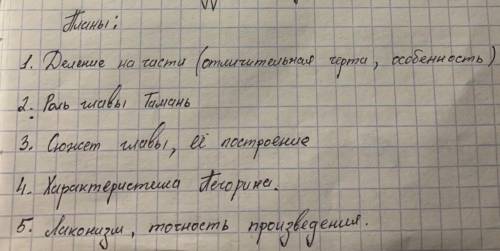 Планы:
1. Деление на части (отличительная черта, особенность)
2. Роль главы Тамань
3. Сюжет главы, её построение
4. Характеристика Печорина.
5. Лаконизм, точность произведения.